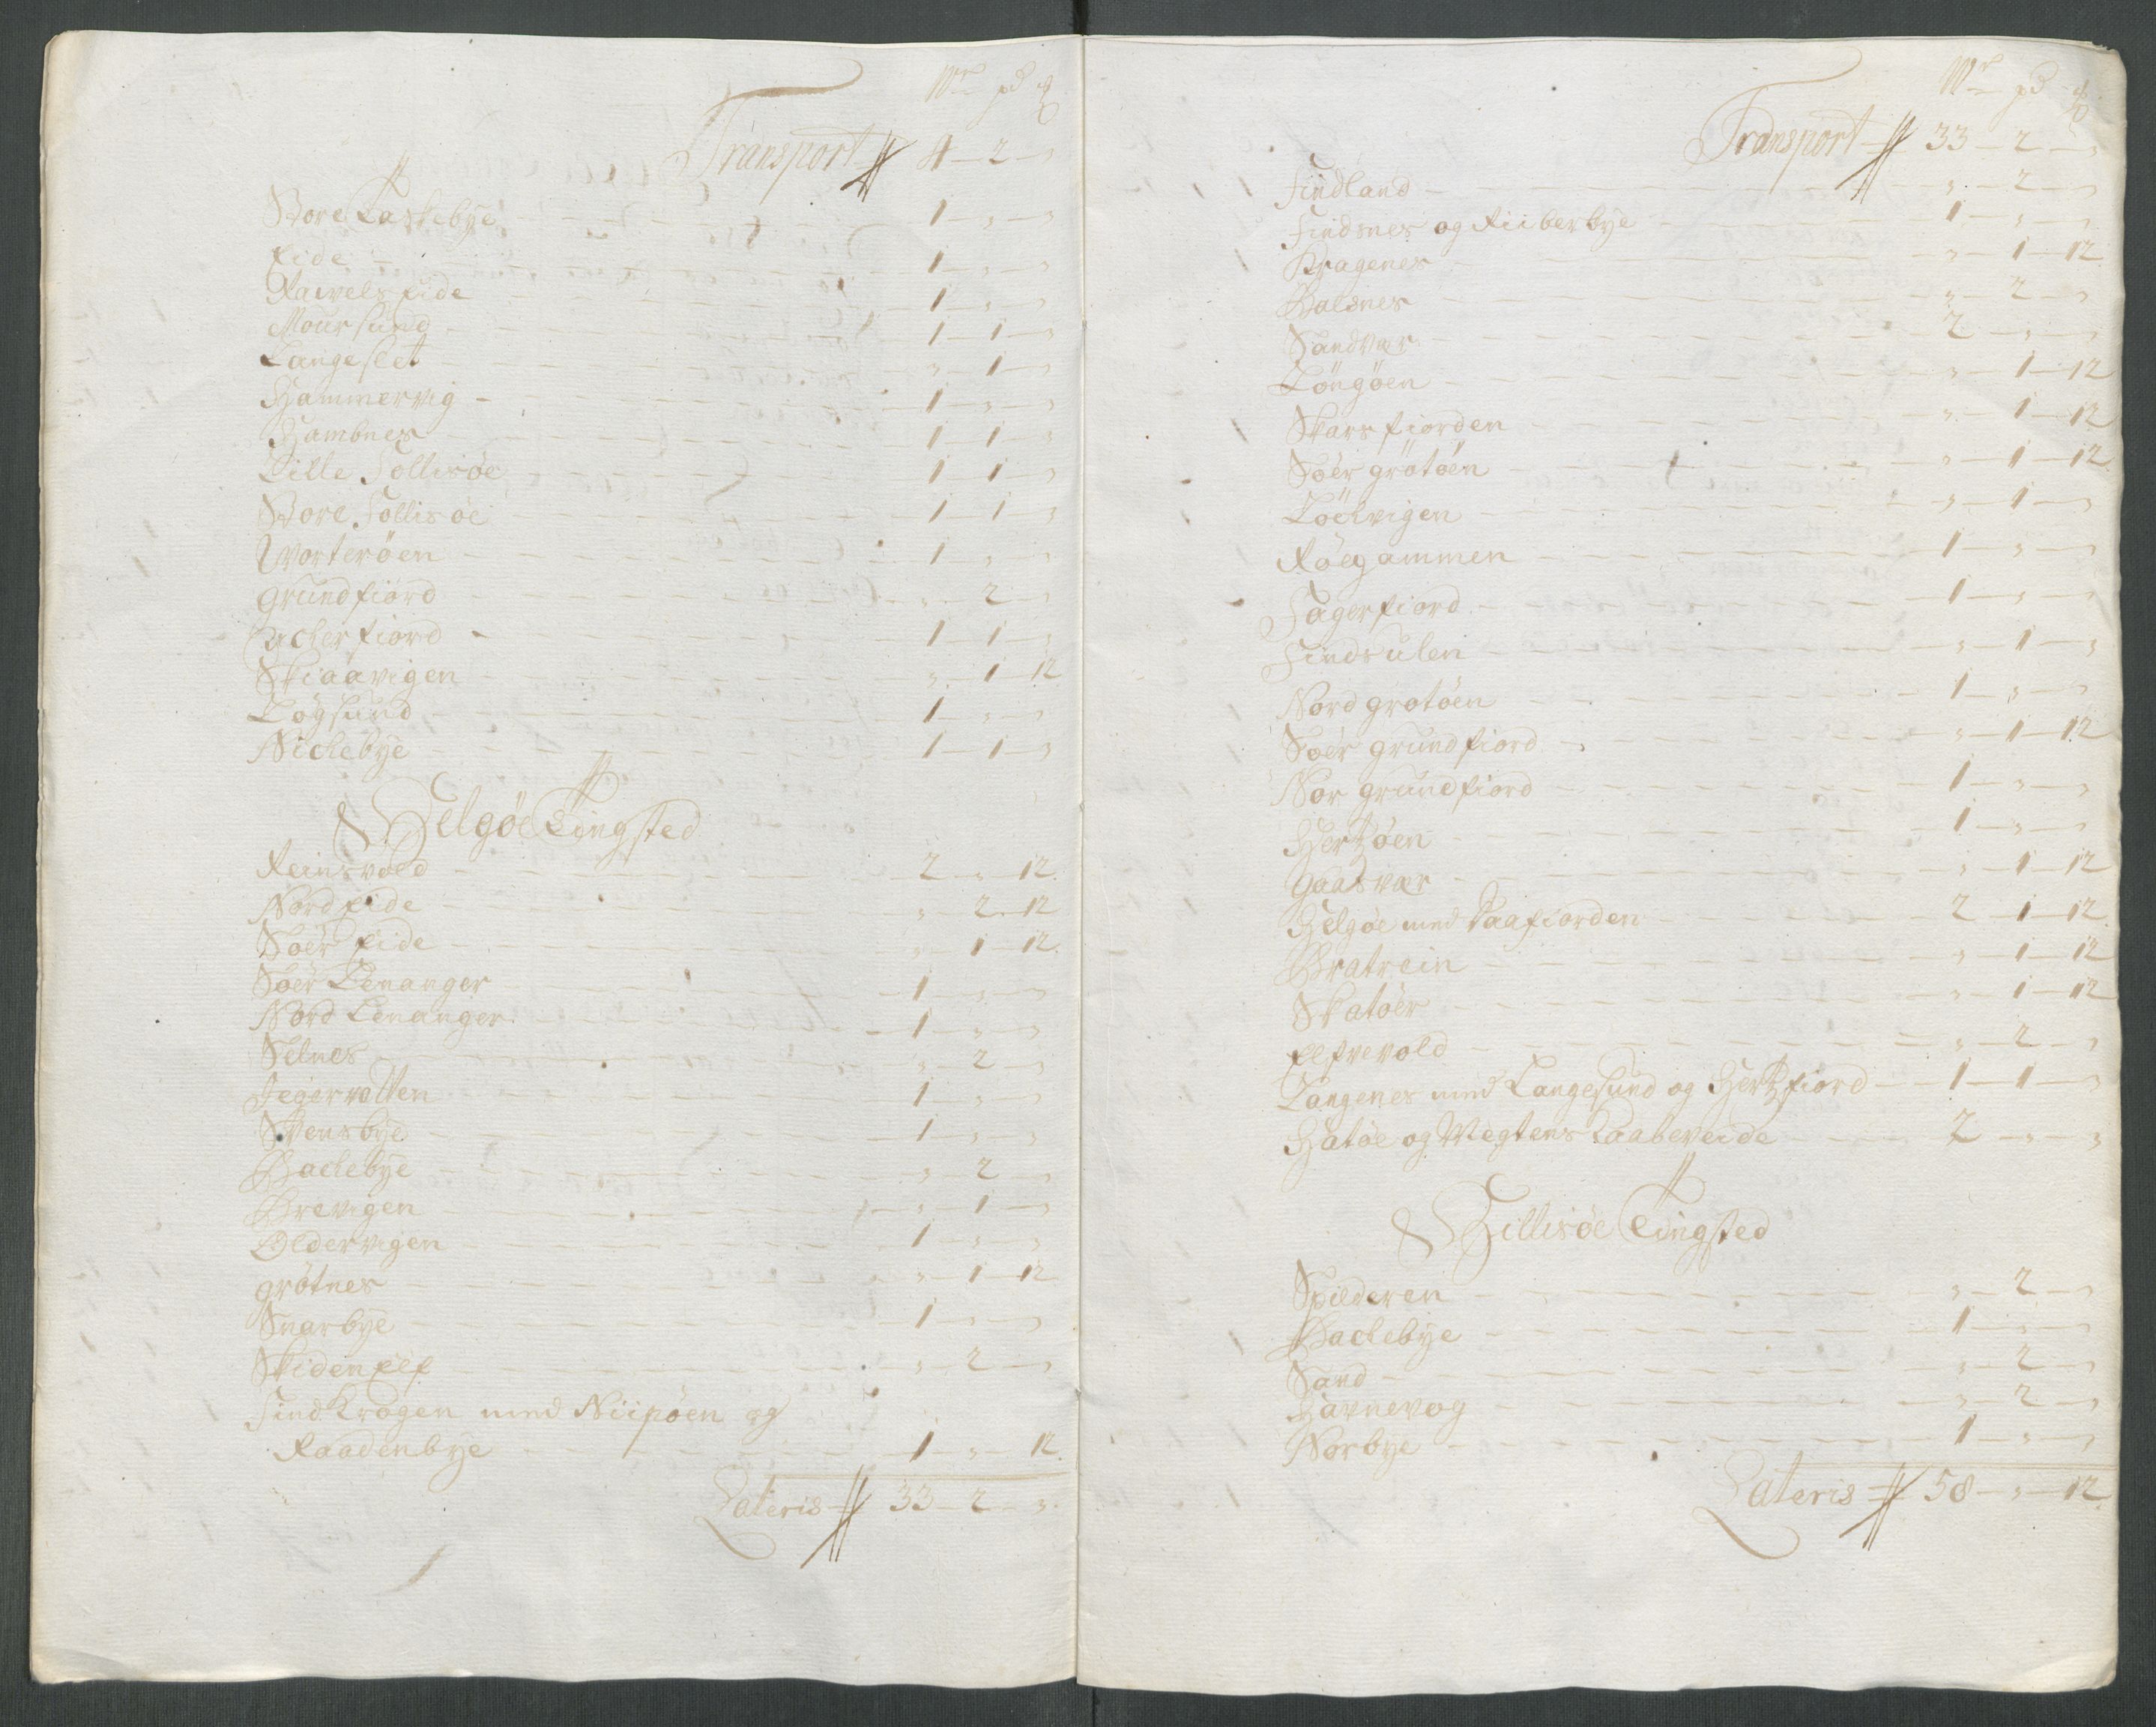 Wr pd ℔
Transport 4 – 2 – „
Store Taskebye – – – 1 – „ – „
Eide – – – 1 – „ – „
Ravels Eide – – – 1 – „ – „
Moursund – – – 1 – 1 – „
Langeslet – – – „ – 1 – „
Hammervig – – – 1 – „ – „
Hambnes – – – 1 – 1 – „
Lille Follisøe – – – 1 – 1 – „
Store Follisøe – – – 1 – 1 – „
Worterøen – – – 1 – „ – „
grundfiord – – – „ – 2 – „
Ackerfiord – – – 1 – 1 – „
Skiaavigen – – – „ – 1 – 12
Løgsund – – – 1 – „ – „
Nickebye – – – 1 – 1 – „
Helgøe Tingsted
Reinsvold – – – 2 – „ – 12
Nord Eide – – – „ – 2 – 12
Søer Eide – – – „ – 1 – 12
Søer Lenanger – – – 1 – „ – „
Nord Lenanger – – – 1 – „ – „
Selnes – – – „ – 2 – „
Jegervatten – – – 1 – „ – „
Svensbye – – – 1 – „ – „
Backebye – – – „ – 2 – „
Brevigen – – – „ – 1 – „
Oldervigen – – – 1 – „ – „
grøtnes – – – „ – 1 – 12
Snarbye – – – 1 – „ – „
Skiden Elf – – – „ – 2 – „
Find Krogen med Niipøen og
Raadenbye – – – 1 – „ – 12
Lateris 33 – 2 – „
Wr pd ℔
Transport 33 – 2 – „
Findland – – – „ – 2 – „
Findsnes og Riiberbye – – – 1 – „ – „
Kragenes – – – „ – 1 – 12
Balsnes – – – „ – 2 – „
Sandvær – – – 2 – „ – „
Løngøen – – – „ – 1 – 12
Skarsfiorden – – – „ – 1 – 12
Søer grøtøen – – – „ – 1 – 12
Løckvigen – – – „ – 1 – „
Røegammen – – – 1 – „ – „
Fagerfiord – – – 1 – „ – „
Findsulen – – – „ – 1 – „
Nord grøtøen – – – 1 – „ – „
Søer grundfiord – – – „ – 1 – 12
Nor grundfiord – – – 1 – „ – „
Hertzøen – – – 1 – „ – „
Gaasvær – – – „ – 1 – 12
Helgøe med Kaafiorden – – – 2 – 1 – 12
Bratrein – – – „ – 1 – 12
Skatøer – – – „ – 1 – 12
Elfvevold – – – „ – 2 – „
Langenes med Langesund og Hertzfiord – – 1 – 1 – „
Hatøe og Wegtens Laabeveide – – 2 – „ – „
Hillisøe Tingsted
Spilderen – – – „ – 2 – „
Backebye – – – 1 – „ – „
Sand – – – „ – 2 – „
Havnevog – – – „ – 2 – „
Norbye – – – 1 – „ – „
Lateris 58 – „ – 12